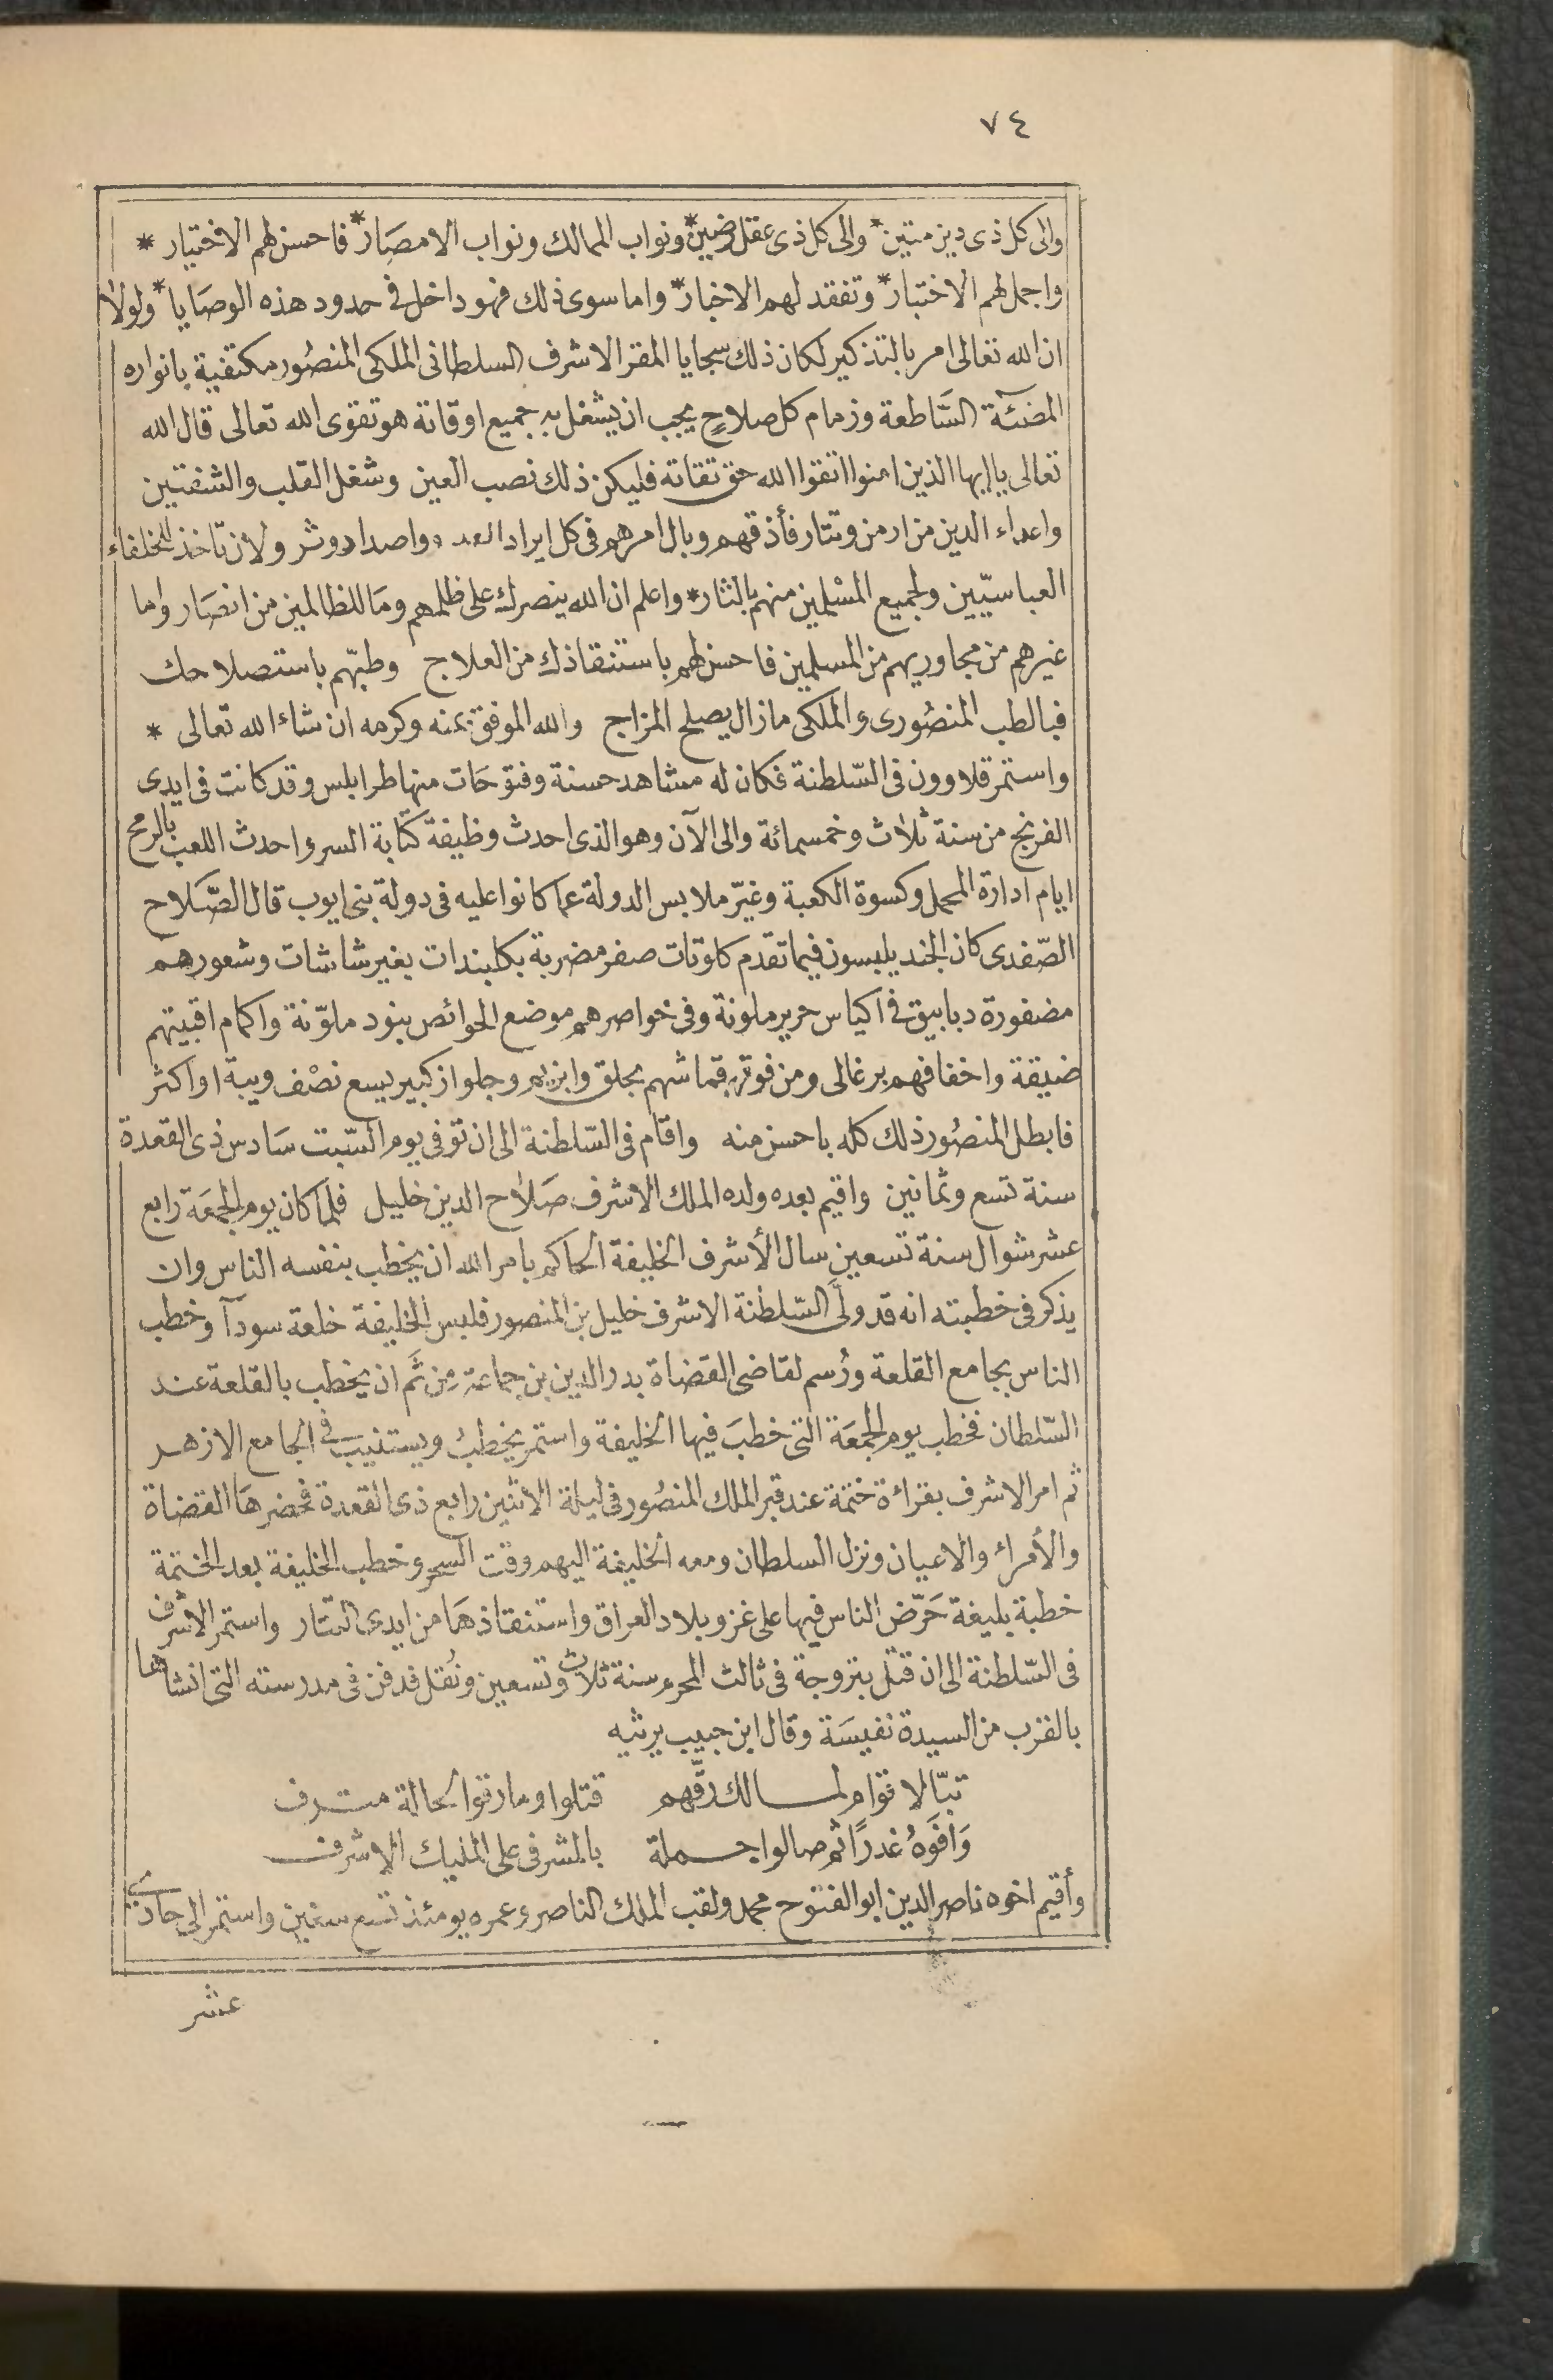 ٧٤
والى كل ذى دين متين * والى كل ذى عقل رضين * ونواب الممالك ونواب الامصَار * فاحسن لهم الاختيار *
واجمل لهم الاختبار * وتفقد لهم الاخبار * واما سوى ذلك فهو داخل فى حدود هذه الوصَايا * ولولا
ان الله تعالى امر بالتذكير لكان ذلك سجايا المقر الاشرف السلطانى الملكى المنصُور مكتفية بانواره
المضئة السَّاطعة وزمام كل صلاحٍ يجب ان يشغل به جميع اوقاتة هو تقوى الله تعالى قال الله
تعالى يا ايها الذين امنوا اتقوا الله حق تقاتة فليكن ذلك نصب العين وشغل القلب والشفتين
واعداء الدين من ارمن وتتار فأذقهم وبال امرهم فى كل ايراد واصدار وثر ولان تاخذ للخلفاء
العباسيّين ولجميع المسْلمين منهم بالثار * واعلم ان الله ينصرك على ظلمهم ومَا للظالمين من انصَار واما
غيرهم من مجاوريهم من المسلمين فاحسن لهم باستنقاذك من العلاج وطبّهم باستصلاحك
فبالطب المنصُورى والملكى مازال يصلح المزاج والله الموفق بمنه وكرمه ان شاء الله تعالى *
واستمر قلاوون فى السّلطنة فكان له مشاهد حسنة وفتوحَات منها طرابلس وقد كانت فى ايدى
الفرنج من سنة ثلاث وخمسمائة والى الآن وهو الذى احدث وظيفة كتابة السر واحدث اللعب بالرمح
ايام ادارة المحمل وكسوة الكعبة وغيّر ملابس الدولة عما كانوا عليه فى دولة بنى ايوب قال الصَّلاح
الصّفدى كان الجند يلبسون فيما تقدم كلوتات صفر مضربة بكلبندات بغير شاشات وشعورهم
مضفورة دبابيق فى اكياس حرير ملونة وفى خواصرهم موضع الحوائص بنود ملوّنة واكمام اقبيتهم
ضيقة واخفافهم برغالى ومن فوق قماشهم بحلق وابزيم وجلواز كبير يسع نصْف ويبة او اكثر
فابطل المنصُور ذلك كله باحسن منه واقام فى السّلطنة الى ان توفى يوم السّبت سَادس ذى القعدة
سنة تسع وثمانين واقيم بعده ولده الملك الاشرف صَلاح الدين خليل فلما كان يوم الجمعَة رابع
عشر شوال سنة تسعين سال الأشرف الخليفة الحاكم بامر الله ان يخطب بنفسه الناس وان
يذكر فى خطبته انه قد ولَّى السّلطنة الاشرف خليل بن المنصور فلبس الخليفة خلعة سودآ وخطب
الناس بجامع القلعة ورُسم لقاضى القضاة بدر الدين بن جماعة من ثَم ان يخطب بالقلعة عند
السّلطان فخطب يوم الجمعَة التى خطبَ فيها الخليفة واستمر يخطبُ ويستنيب فى الجامع الازهر
ثم امر الاشرف بقراءة ختمة عند قبر الملك المنصُور فى ليلة الاثنين رابع ذى القعدة فحضرهَا القضاة
والأمراء والاعيان ونزل السلطان ومعه الخليفة اليهم وقت السحر وخطب الخليفة بعد الختمة
خطبة بليغة حَرّض الناس فيها على غزو بلاد العراق واستنقاذهَا من ايدى التتار واستمر الاشرف
فى السّلطنة الى ان قتل بتروجة فى ثالث المحرم سنة ثلاث وتسعين ونُقل فدفن فى مدرسته التى انشاها
بالقرب من السيدة نفيسَة وقال ابن حبيب يرثيه
تبّا لاقوام لمسالك رقّهم قتلوا وما رقوا لحالة مترف
وَافوَهُ غدرًا ثم صالوا جملة بالمشرفى على المليك الاشرف
وأقيم اخوه ناصر الدين ابو الفتوح محمد ولقب الملك الناصر وعمره يومئذ تسع سنين واستمر الى حادى
عشر